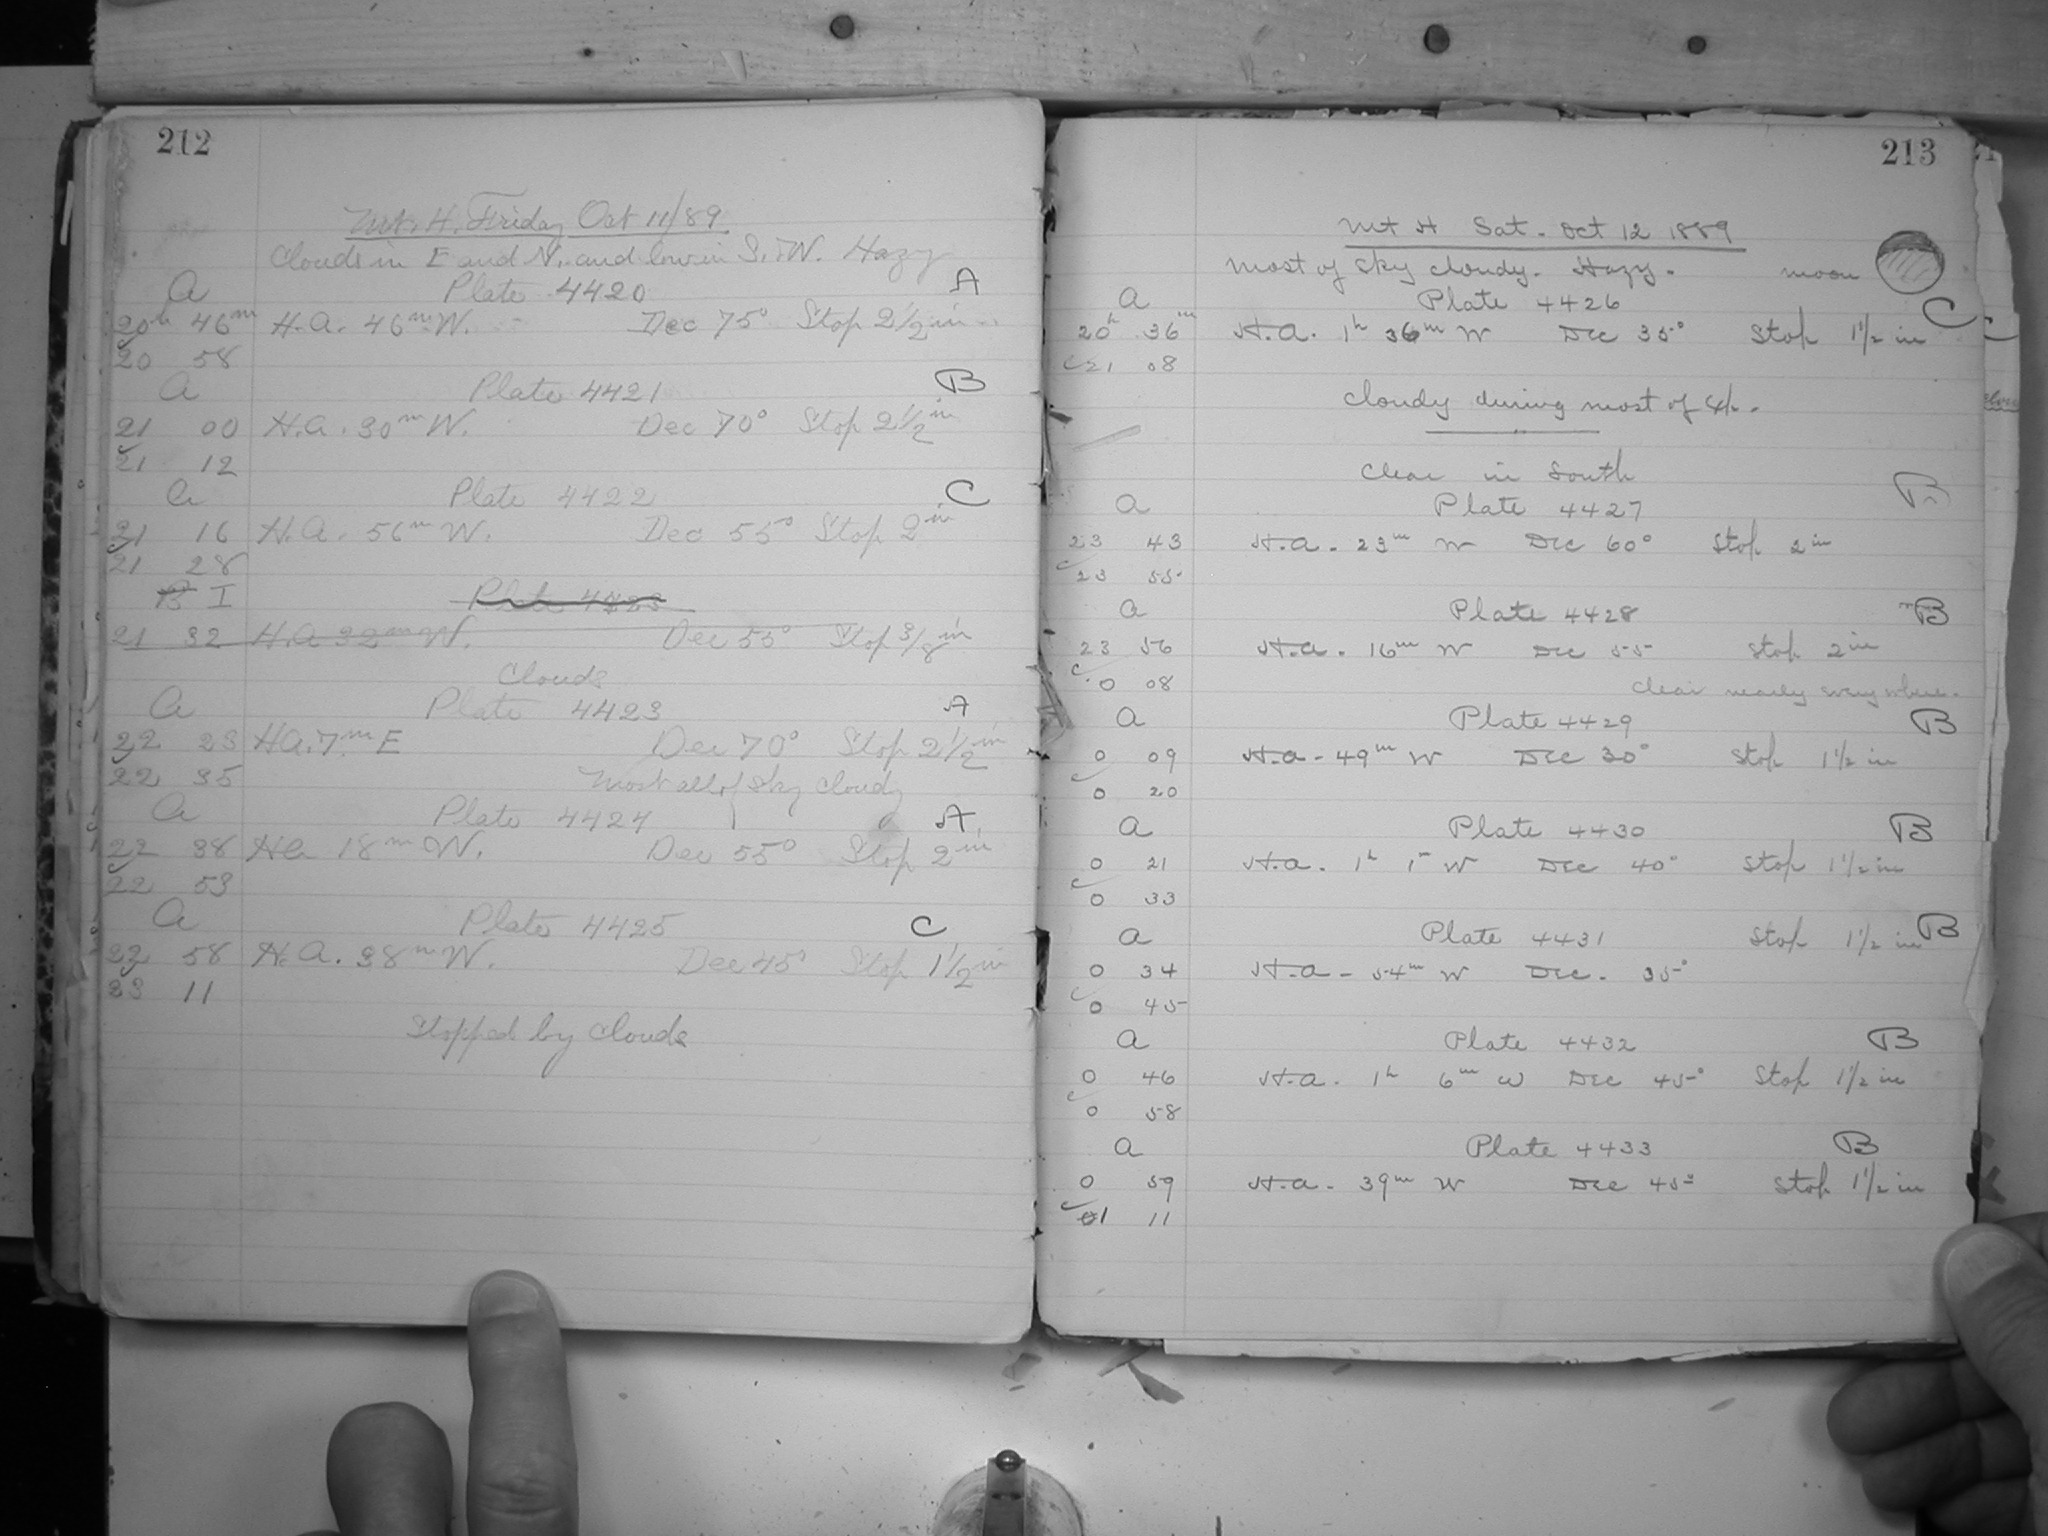 212
Mt. H. Friday Oct 11/89
Clouds in E and N. and low in S. W. Hazy
a Plate 4420 A
20h 46m H.A. 46m W. Dec 75° Stop 2 1/2 in
20 58
a Plate 4421 B
21 00 H.A. 30m W. Dec 70° Stop 2 1/2 in
21 12
a Plate 4422 C
21 16 H.A. 56m W. Dec 55° Stop 2 in
21 28
B I Plate 4423
21 32 H.A. 32m W. Dec 55° Stop 3/8 in
Clouds
a Plate 4423 A
22 23 H.A. 7m E Dec 70° Stop 2 1/2 in
22 35 Most all of sky cloudy
a Plate 4424 A
22 38 Ha 18m W. Dec 55° Stop 2 in
22 53
a Plate 4425 C
22 58 H.A. 38m W. Dec 45° Stop 1 1/2 in
23 11
Stopped by clouds
213
Mt H Sat. Oct 12 1889
Most of sky cloudy. Hazy. moon
a Plate 4426 C
20h 36m H.A. 1h 36m W Dec 35° Stop 1 1/2 in
21 08
Cloudy during most of
Clear in South
a Plate 4427 B
23 43 H.a. 23m W Dec 60° Stop 2 in
23 55
a Plate 4428 B
23 56 H.a. 16m W Dec 55 Stop 2 in
0 08 Clear nearly everywhere.
a Plate 4429 B
0 09 H.a. 49m W Dec 30° Stop 1 1/2 in
0 20
a Plate 4430 B
0 21 H.a. 1h 1m W Dec 40° Stop 1 1/2 in
0 33
a Plate 4431 Stop 1 1/2 in B
0 34 H.a. 54m W Dec. 35°
0 45
a Plate 4432 B
0 46 H.a. 1h 6m W Dec 45° Stop 1 1/2 in
0 58
a Plate 4433 B
0 59 H.a. 39m W Dec 45° Stop 1 1/2 in
01 11